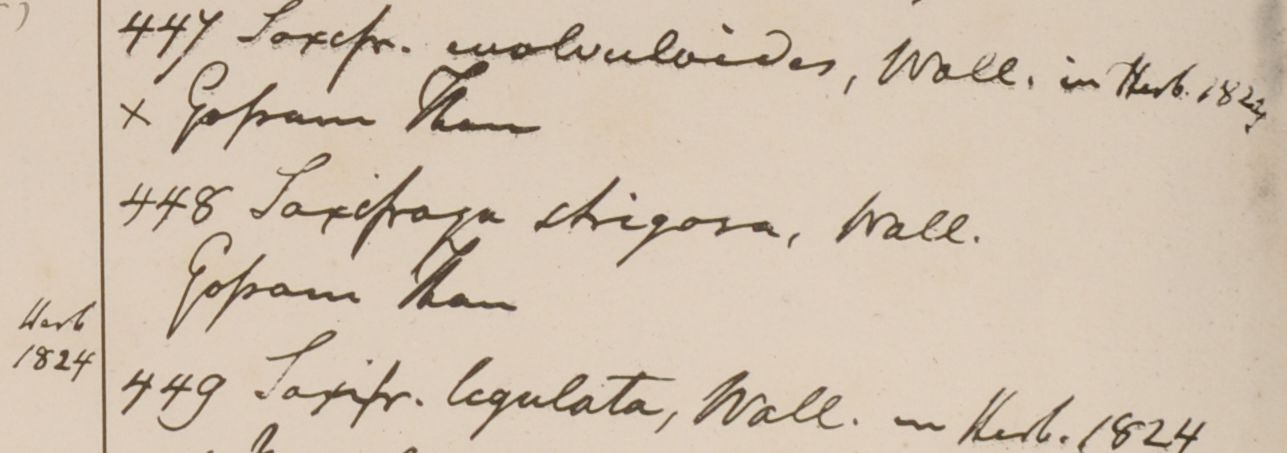 447 Saxifr. evolvuloides, Wall. in Herb. 1824
× Gosam Than
448 Saxifraga strigosa, Wall.
Gosam Than
Herb
1824
449 Saxifr. legulata, Wall. in Herb. 1824